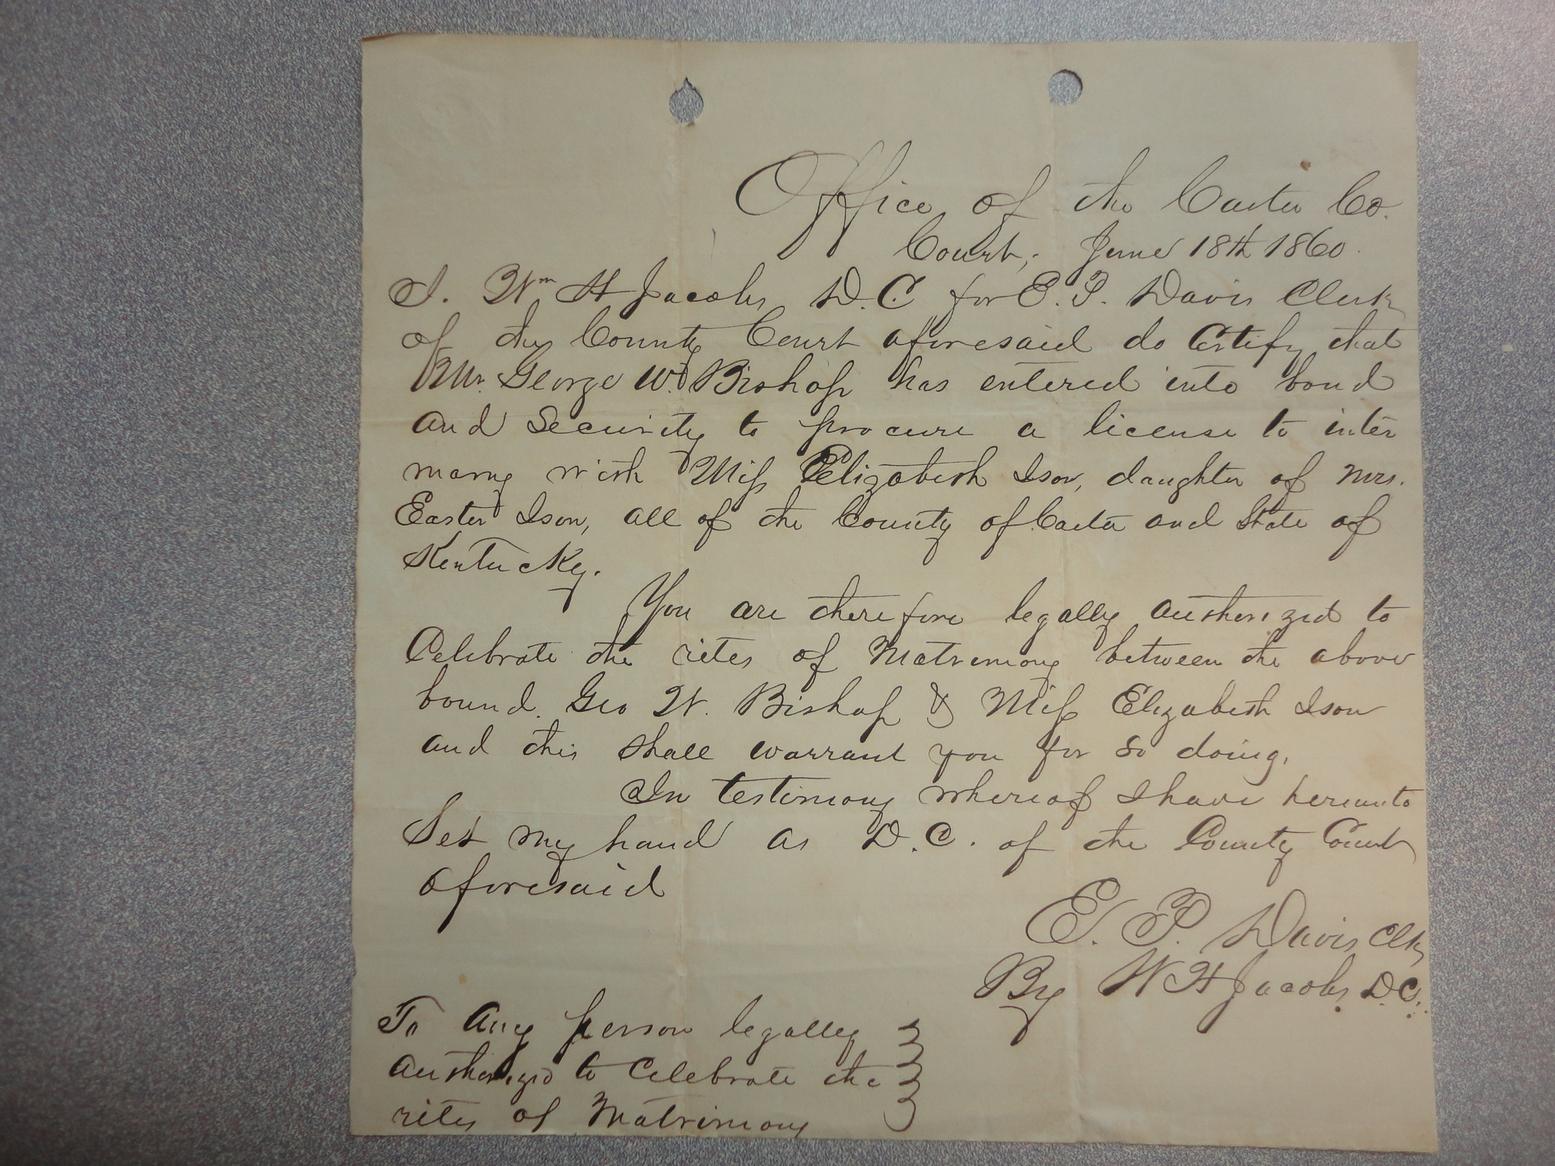 Office of the Carter Co.
Court, June 18th 1860.
I. Wm H Jacobs, D.C for E. P. Davis Clerk
of the County Court aforesaid do Certify that
Mr. George W. Bishop has entered into bond
and Security to procure a license to inter
marry with Miss Elizabeth Ison, daughter of Mrs.
Easter Ison, all of the County of Carter and State of
Kentucky.
You are therefore legally authorized to
Celebrate the rites of Matrimony between the above
bound. Geo W. Bishop & Miss Elizabeth Ison
and this shall warrant you for so doing.
In testimony whereof I have hereunto
Set my hand as D.C. of the County Court
aforesaid
E. P. Davis Clk
By W H Jacobs D.C.
To Any person legally
authorized to Celebrate the
rites of Matrimony